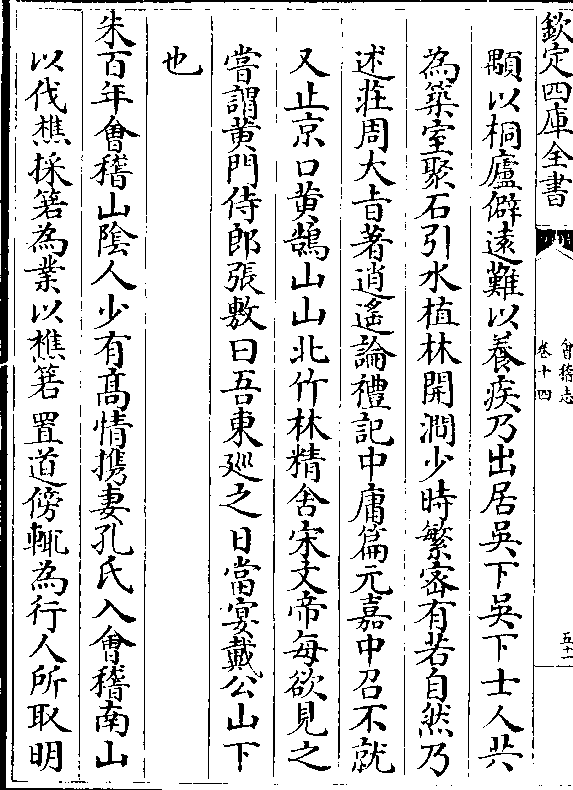 欽定四庫全書
會稽志
卷十四
五十一
顒以桐廬僻遠難以養疾乃出居吳下吳下士人共
為築室聚石引水植林開澗少時繁密有若自然乃
述莊周大㫖著逍遙論禮記中庸篇元嘉中召不就
又止京口黄鵠山山北竹林精舍宋文帝每欲見之
嘗謂黄門侍郎張敷曰吾東廵之日當宴戴公山下
也
朱百年會稽山陰人少有髙情携妻孔氏入會稽南山
以伐樵採箬為業以樵箬置道傍輒為行人所取明